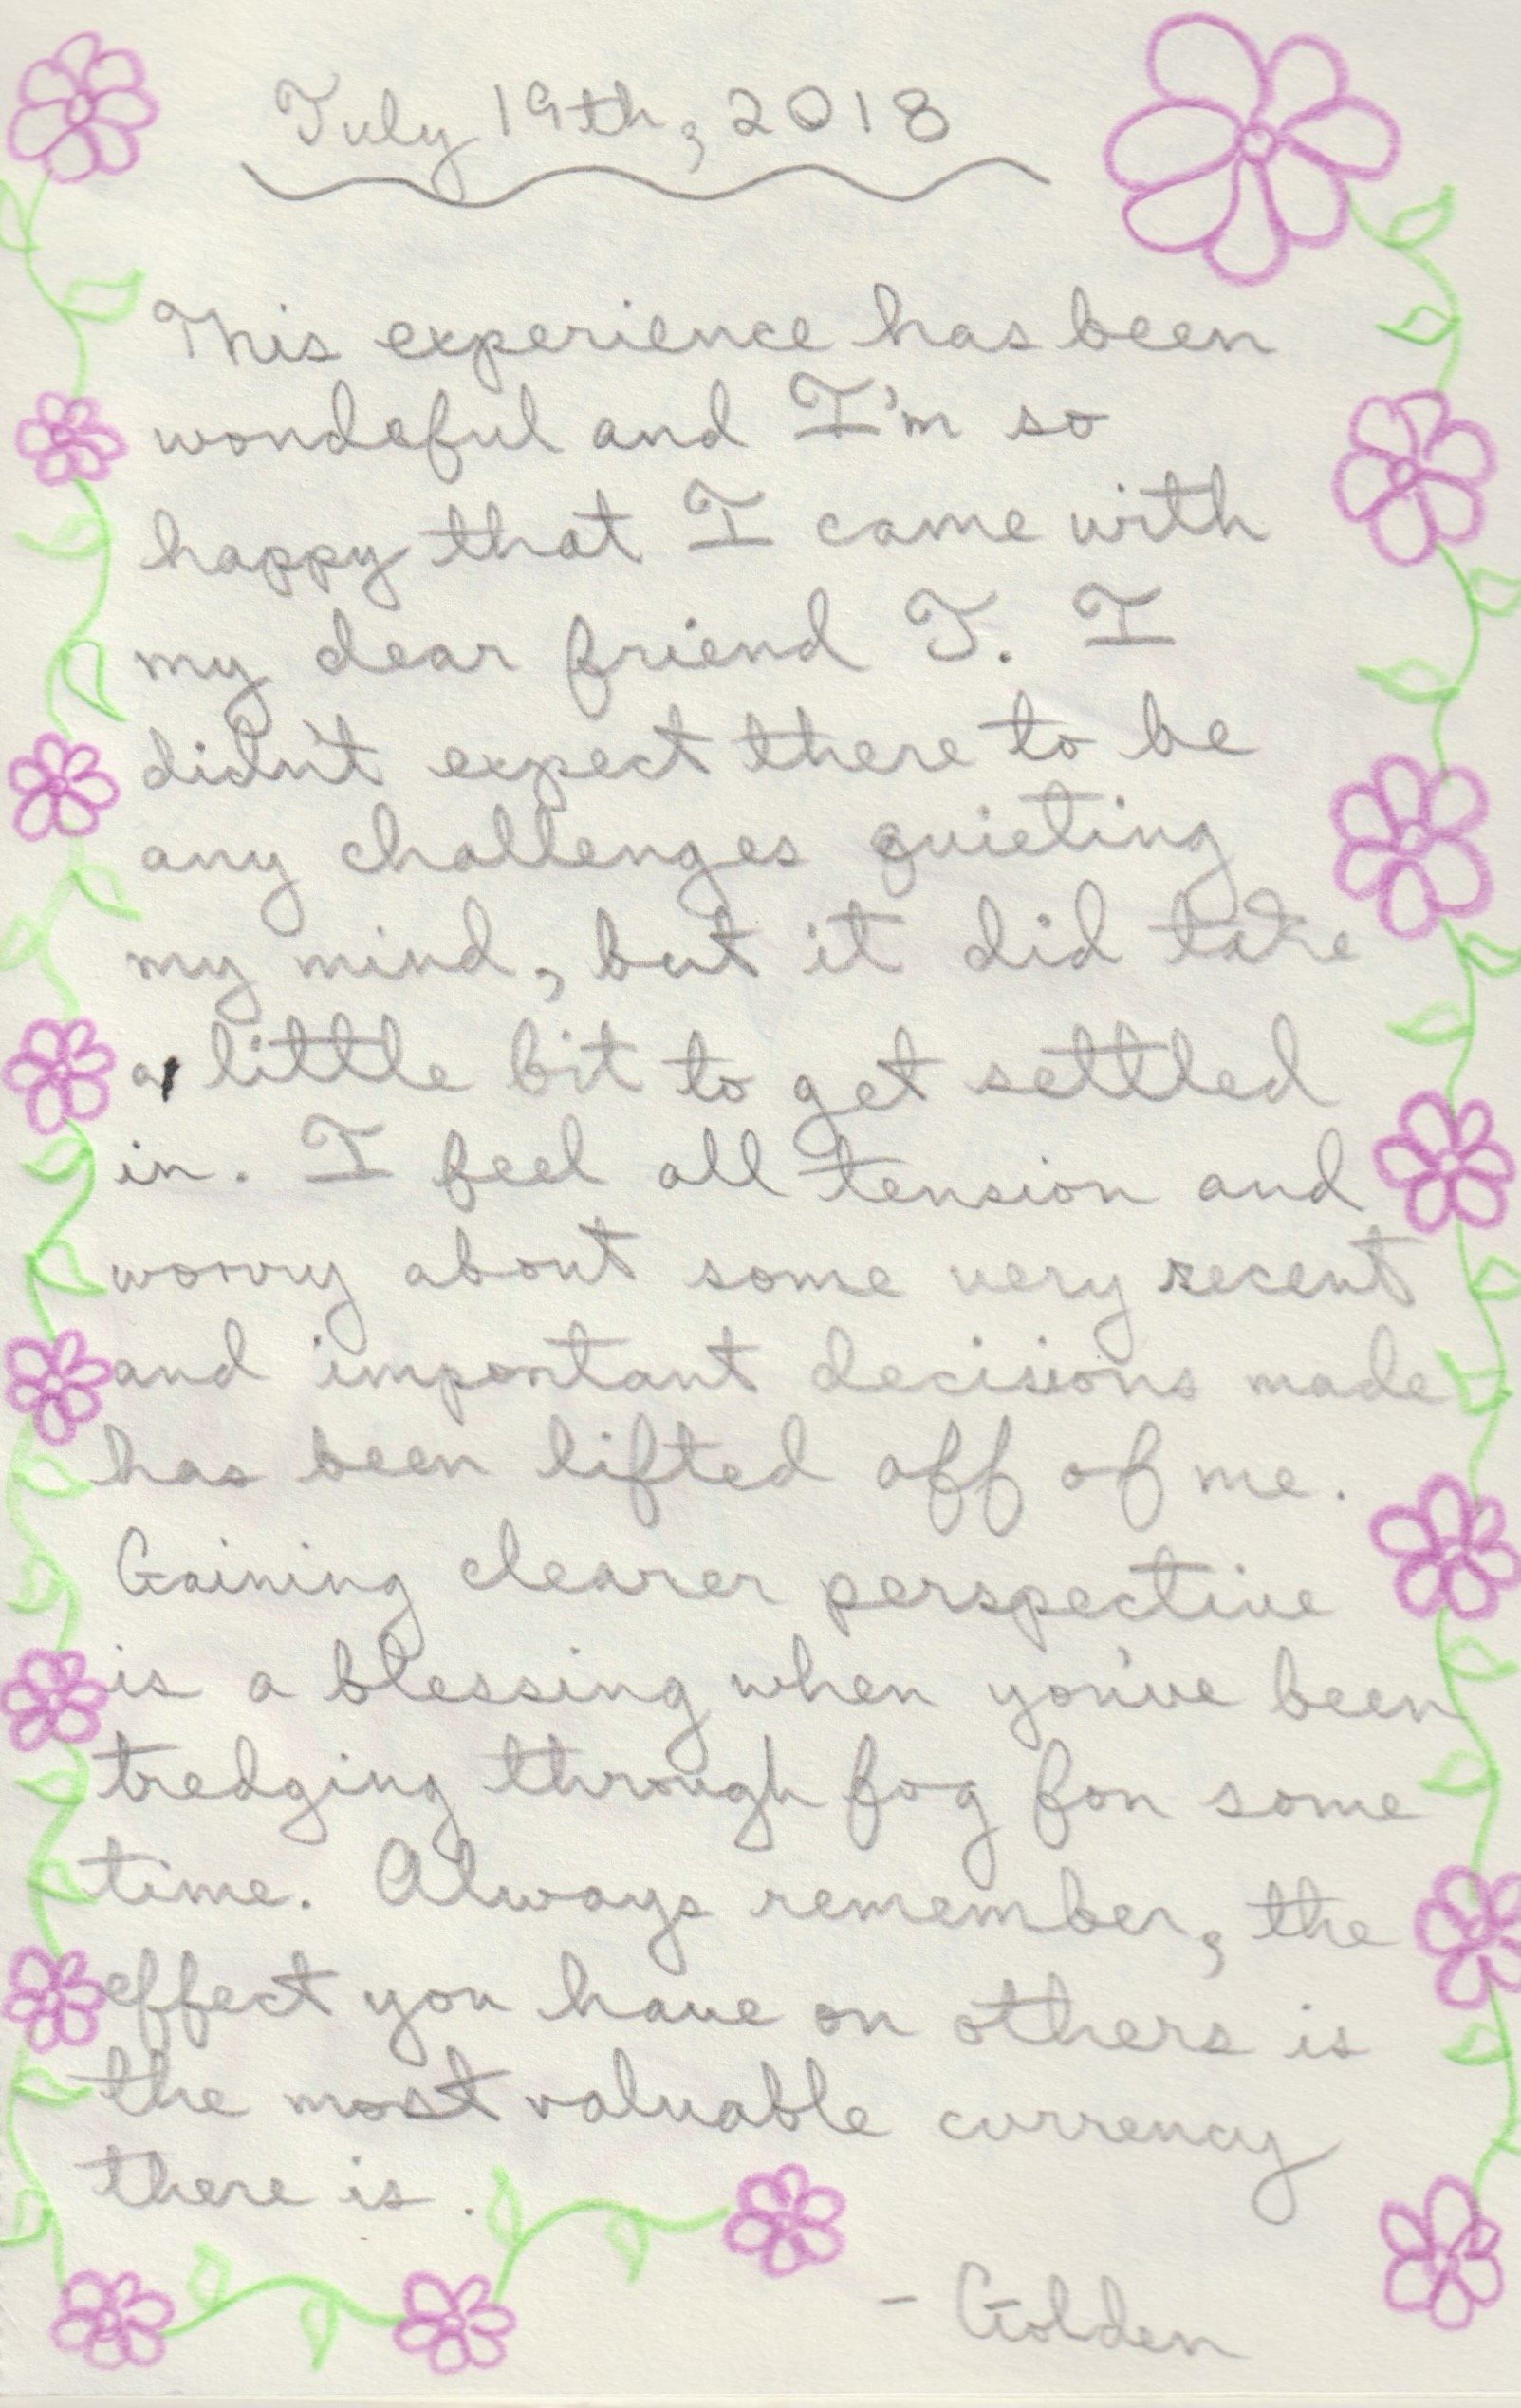 July 19th, 2018
This experience has been
wondeful and I'm so
happy that I came with
my dear friend J. I
didn't expect there to be
any challenges quieting
my mind, but it did take
a little bit to get settled
in. I feel all tension and
worry about some very recent
and important decisions made
has been lifted off of me.
Gaining clearer perspective
is a blessing when you've been
tredging through fog for some
time. Always remember, the
effect you have on others is
the most valuable currency
there is.
- Golden